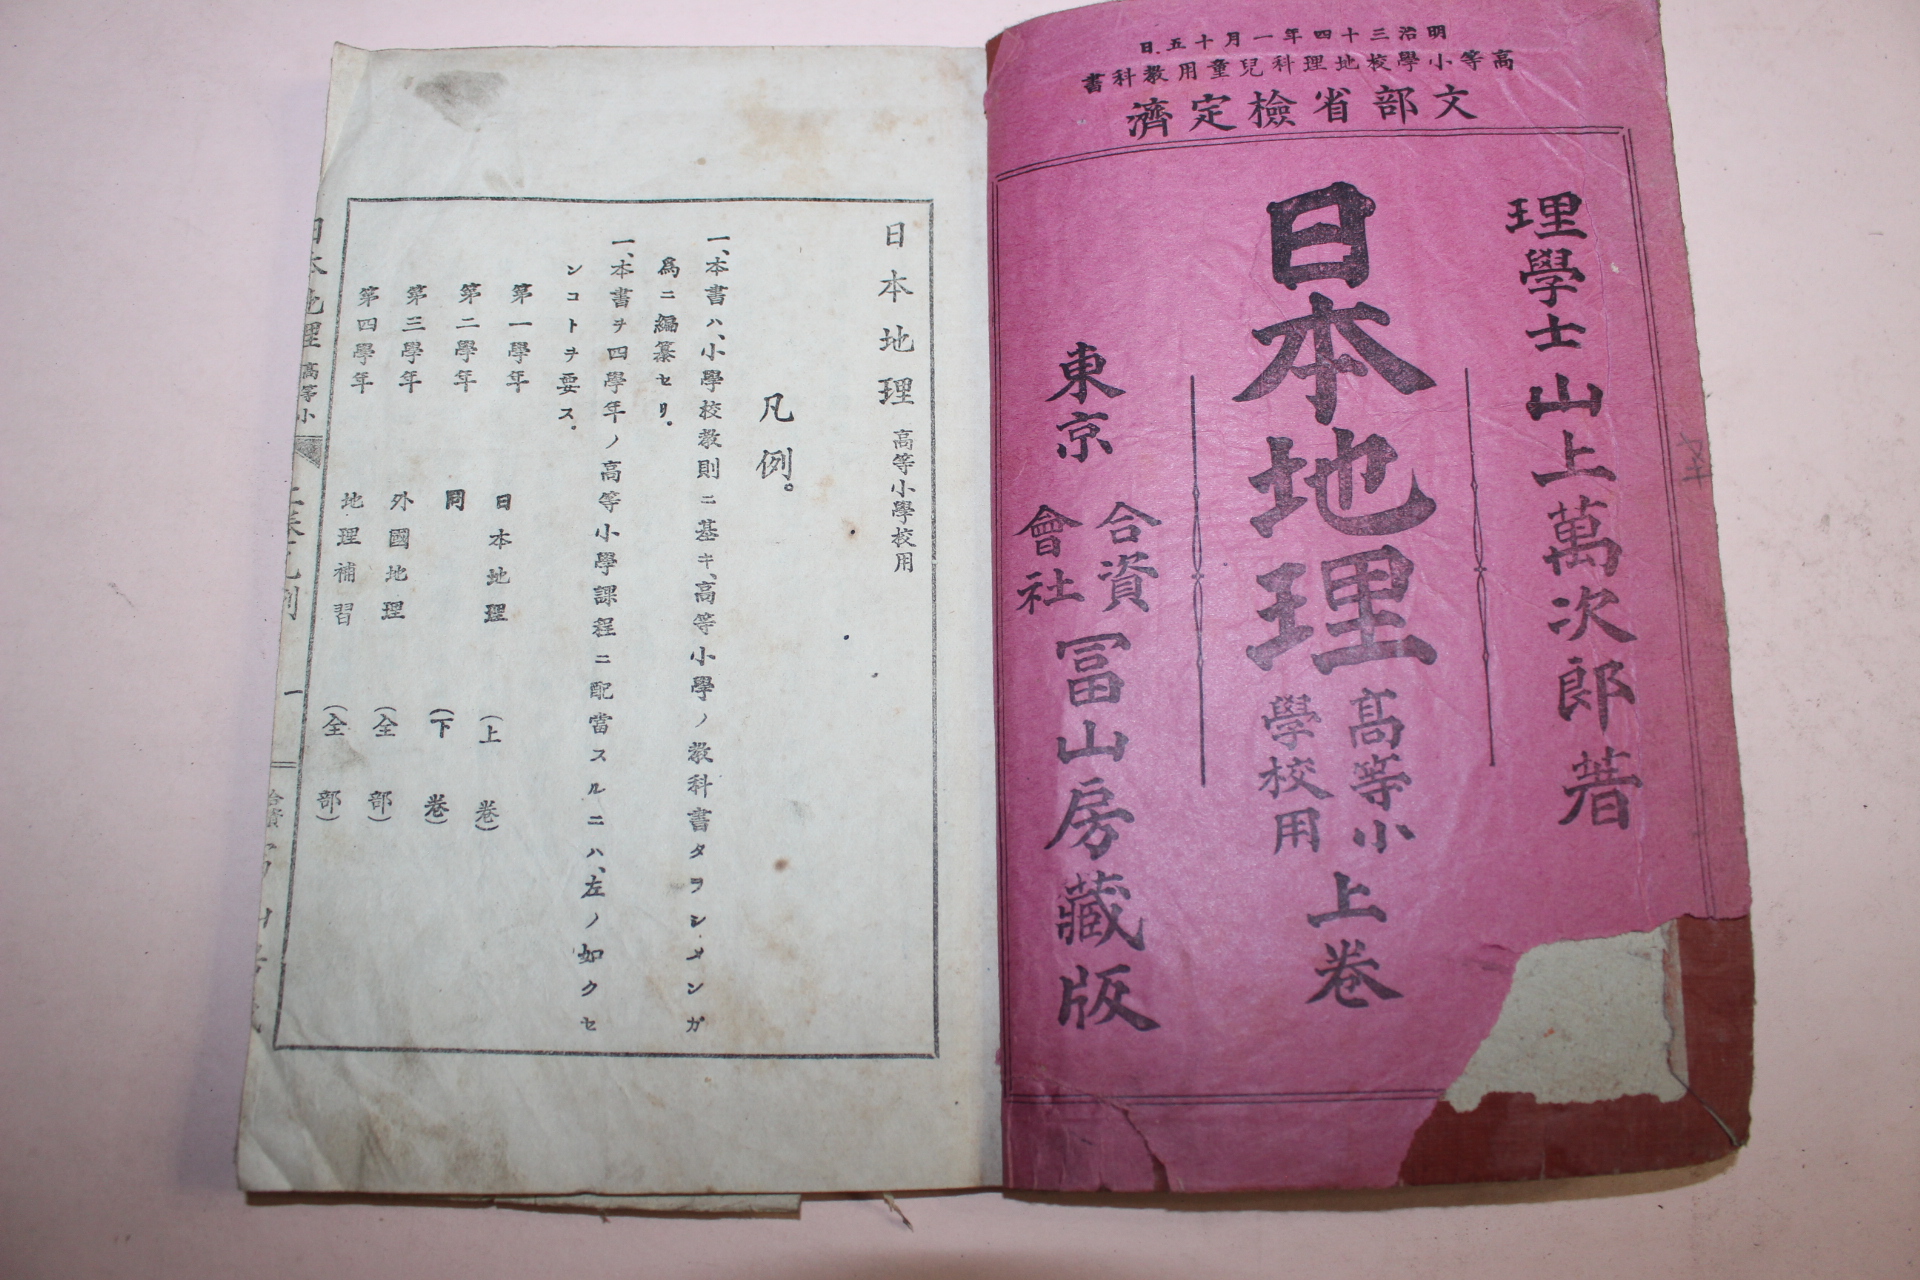 明治三十四年一月十五日
高等小學校地理科兒童用教科書
文部省檢定濟
理學士山上萬次郎著
日本地理高等小學校用上卷
東京合資會社冨山房藏版
日本地理高等小學校用
凡例。
一、本書ハ、小學校教則ニ基キ、高等小學ノ教科書タラシメンガ
爲ニ編纂セリ。
一、本書ヲ四學年ノ高等小學課程ニ配當スルニハ、左ノ如クセ
ンコトヲ要ス。
第一學年 日本地理 (上卷)
第二學年 同 (下卷)
第三學年 外國地理 (全部)
第四學年 地理補習 (全部)
日本地理高等小
一